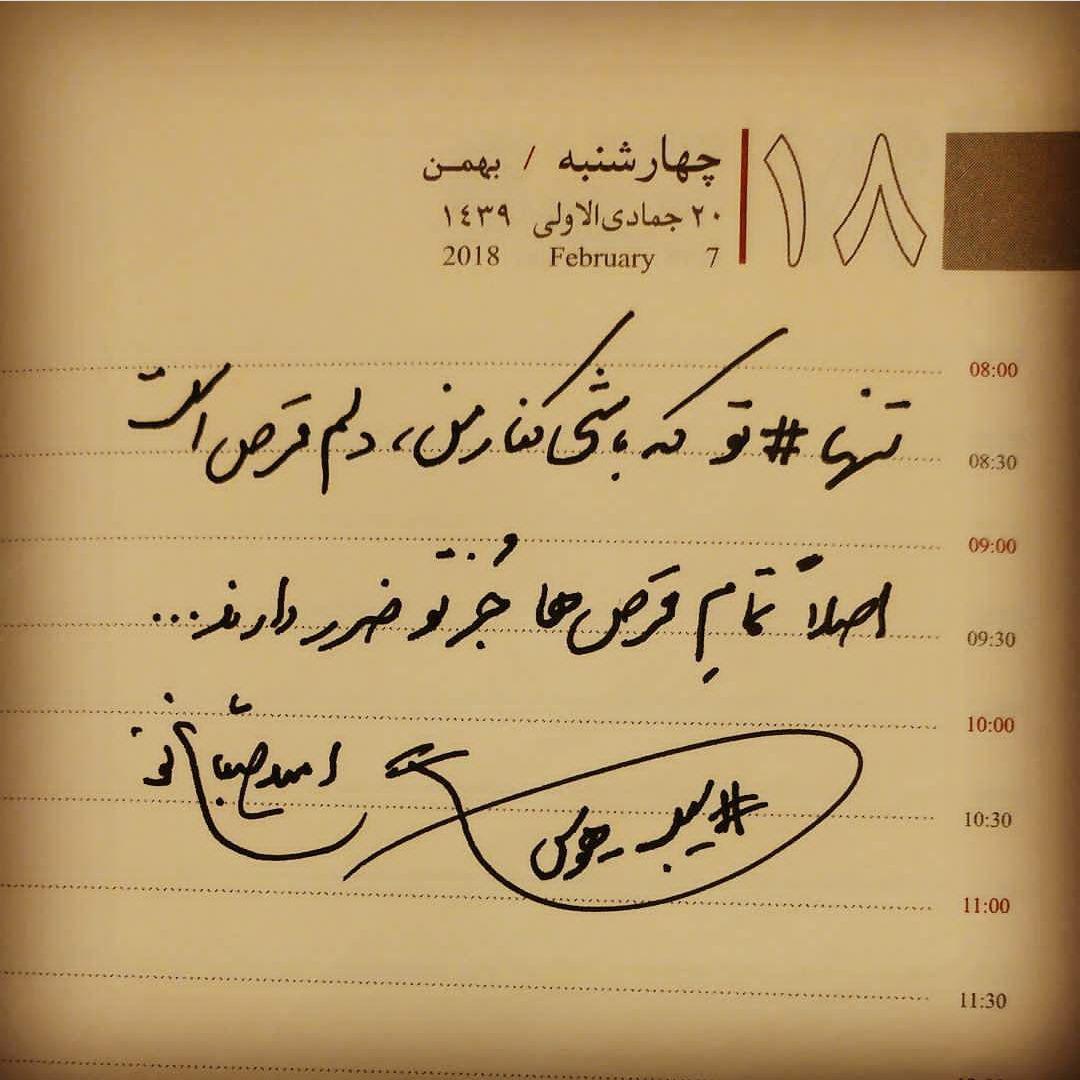 ۱۸
چهارشنبه / بهمن
۲۰ جمادی‌الاولی ۱۴۳۹
7 February 2018
08:00
تنها #تو که باشی کنار من، دلم قرَص است
08:30
09:00
اصلاً تمامِ قرَص ها جُز تو ضرر دارند...
09:30
10:00
امید صباغ نو
#یبد_هوس
10:30
11:00
11:30